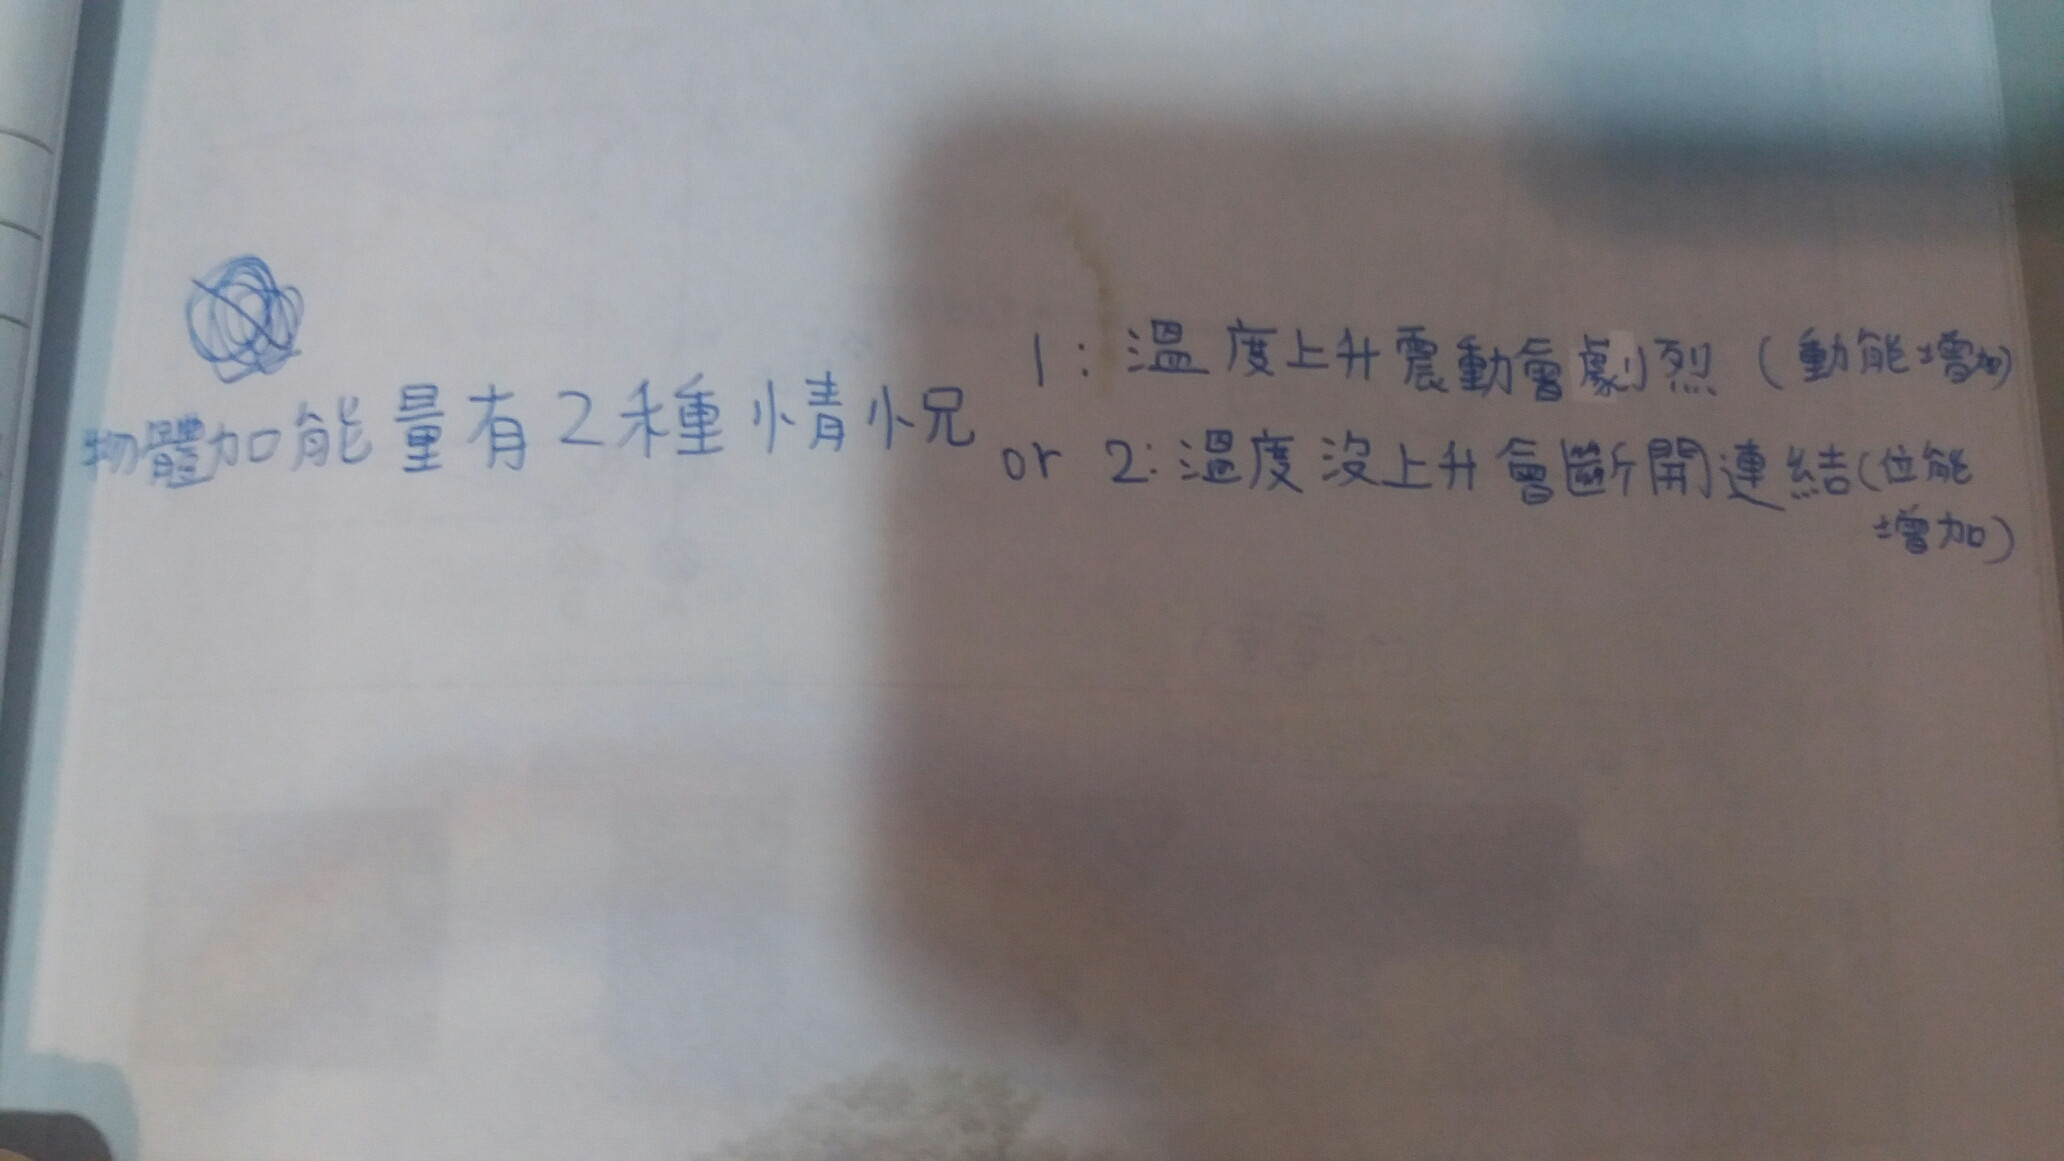 物體加能量有2種情況
1:溫度上升震動會劇烈(動能增加)
or 2:溫度沒上升會斷開連結(位能
增加)